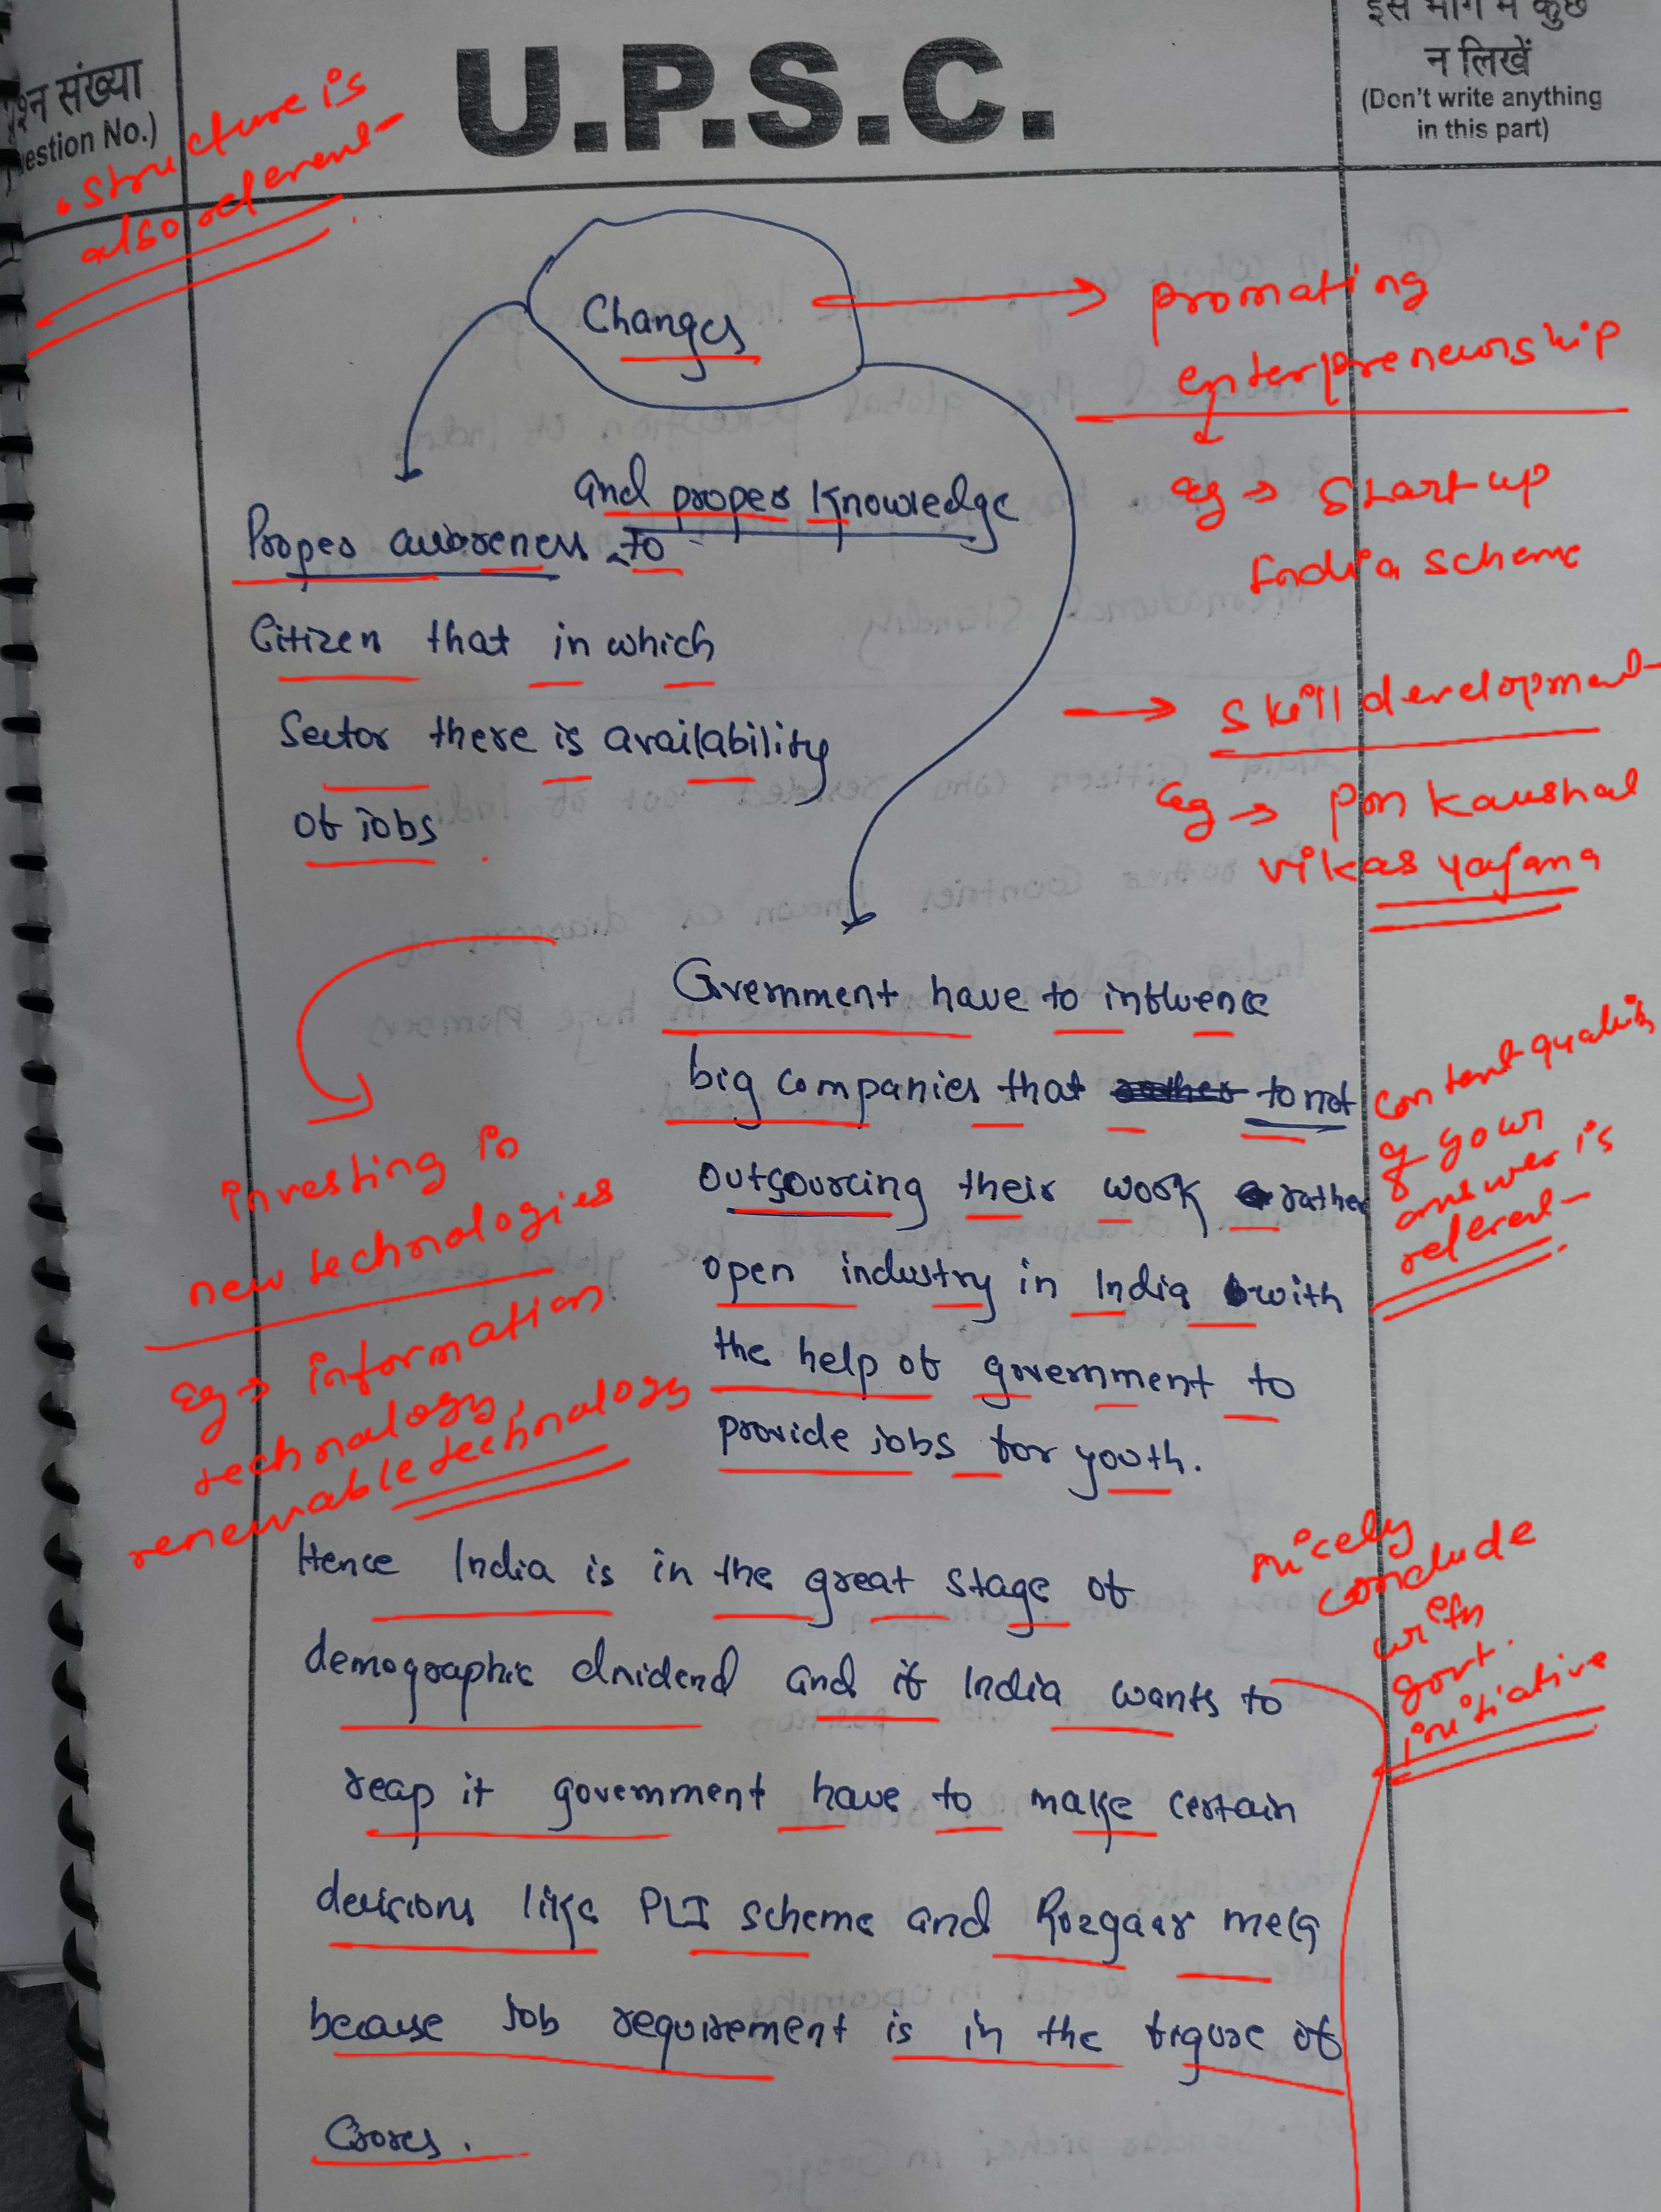 श्न संख्या
estion No.)
U.P.S.C.
इस भाग में कुछ
न लिखें
(Don't write anything
in this part)
• Structure is
also relevent
Changes
→ promating
enterpreneurship
eg → Startup
India scheme
and proper knowledge
Proper awareness to
Citizen that in which
Sector there is availability
of jobs
→ Skill development
eg → Pm Kaushal
vikas yojana
Government have to influence
big companies that to not
outsourcing their work rather
open industry in India with
the help of government to
provide jobs for youth.
content quality
of your
answer is
relevent
investing in
new technologies
eg → information
technology,
renewable technology
Hence India is in the great stage of
demographic dividend and if India wants to
reap it government have to make certain
decisions like PLI scheme and Rozgaar mela
because Job requirement is in the figure of
Crores.
nicely
conclude
with
govt.
initiative